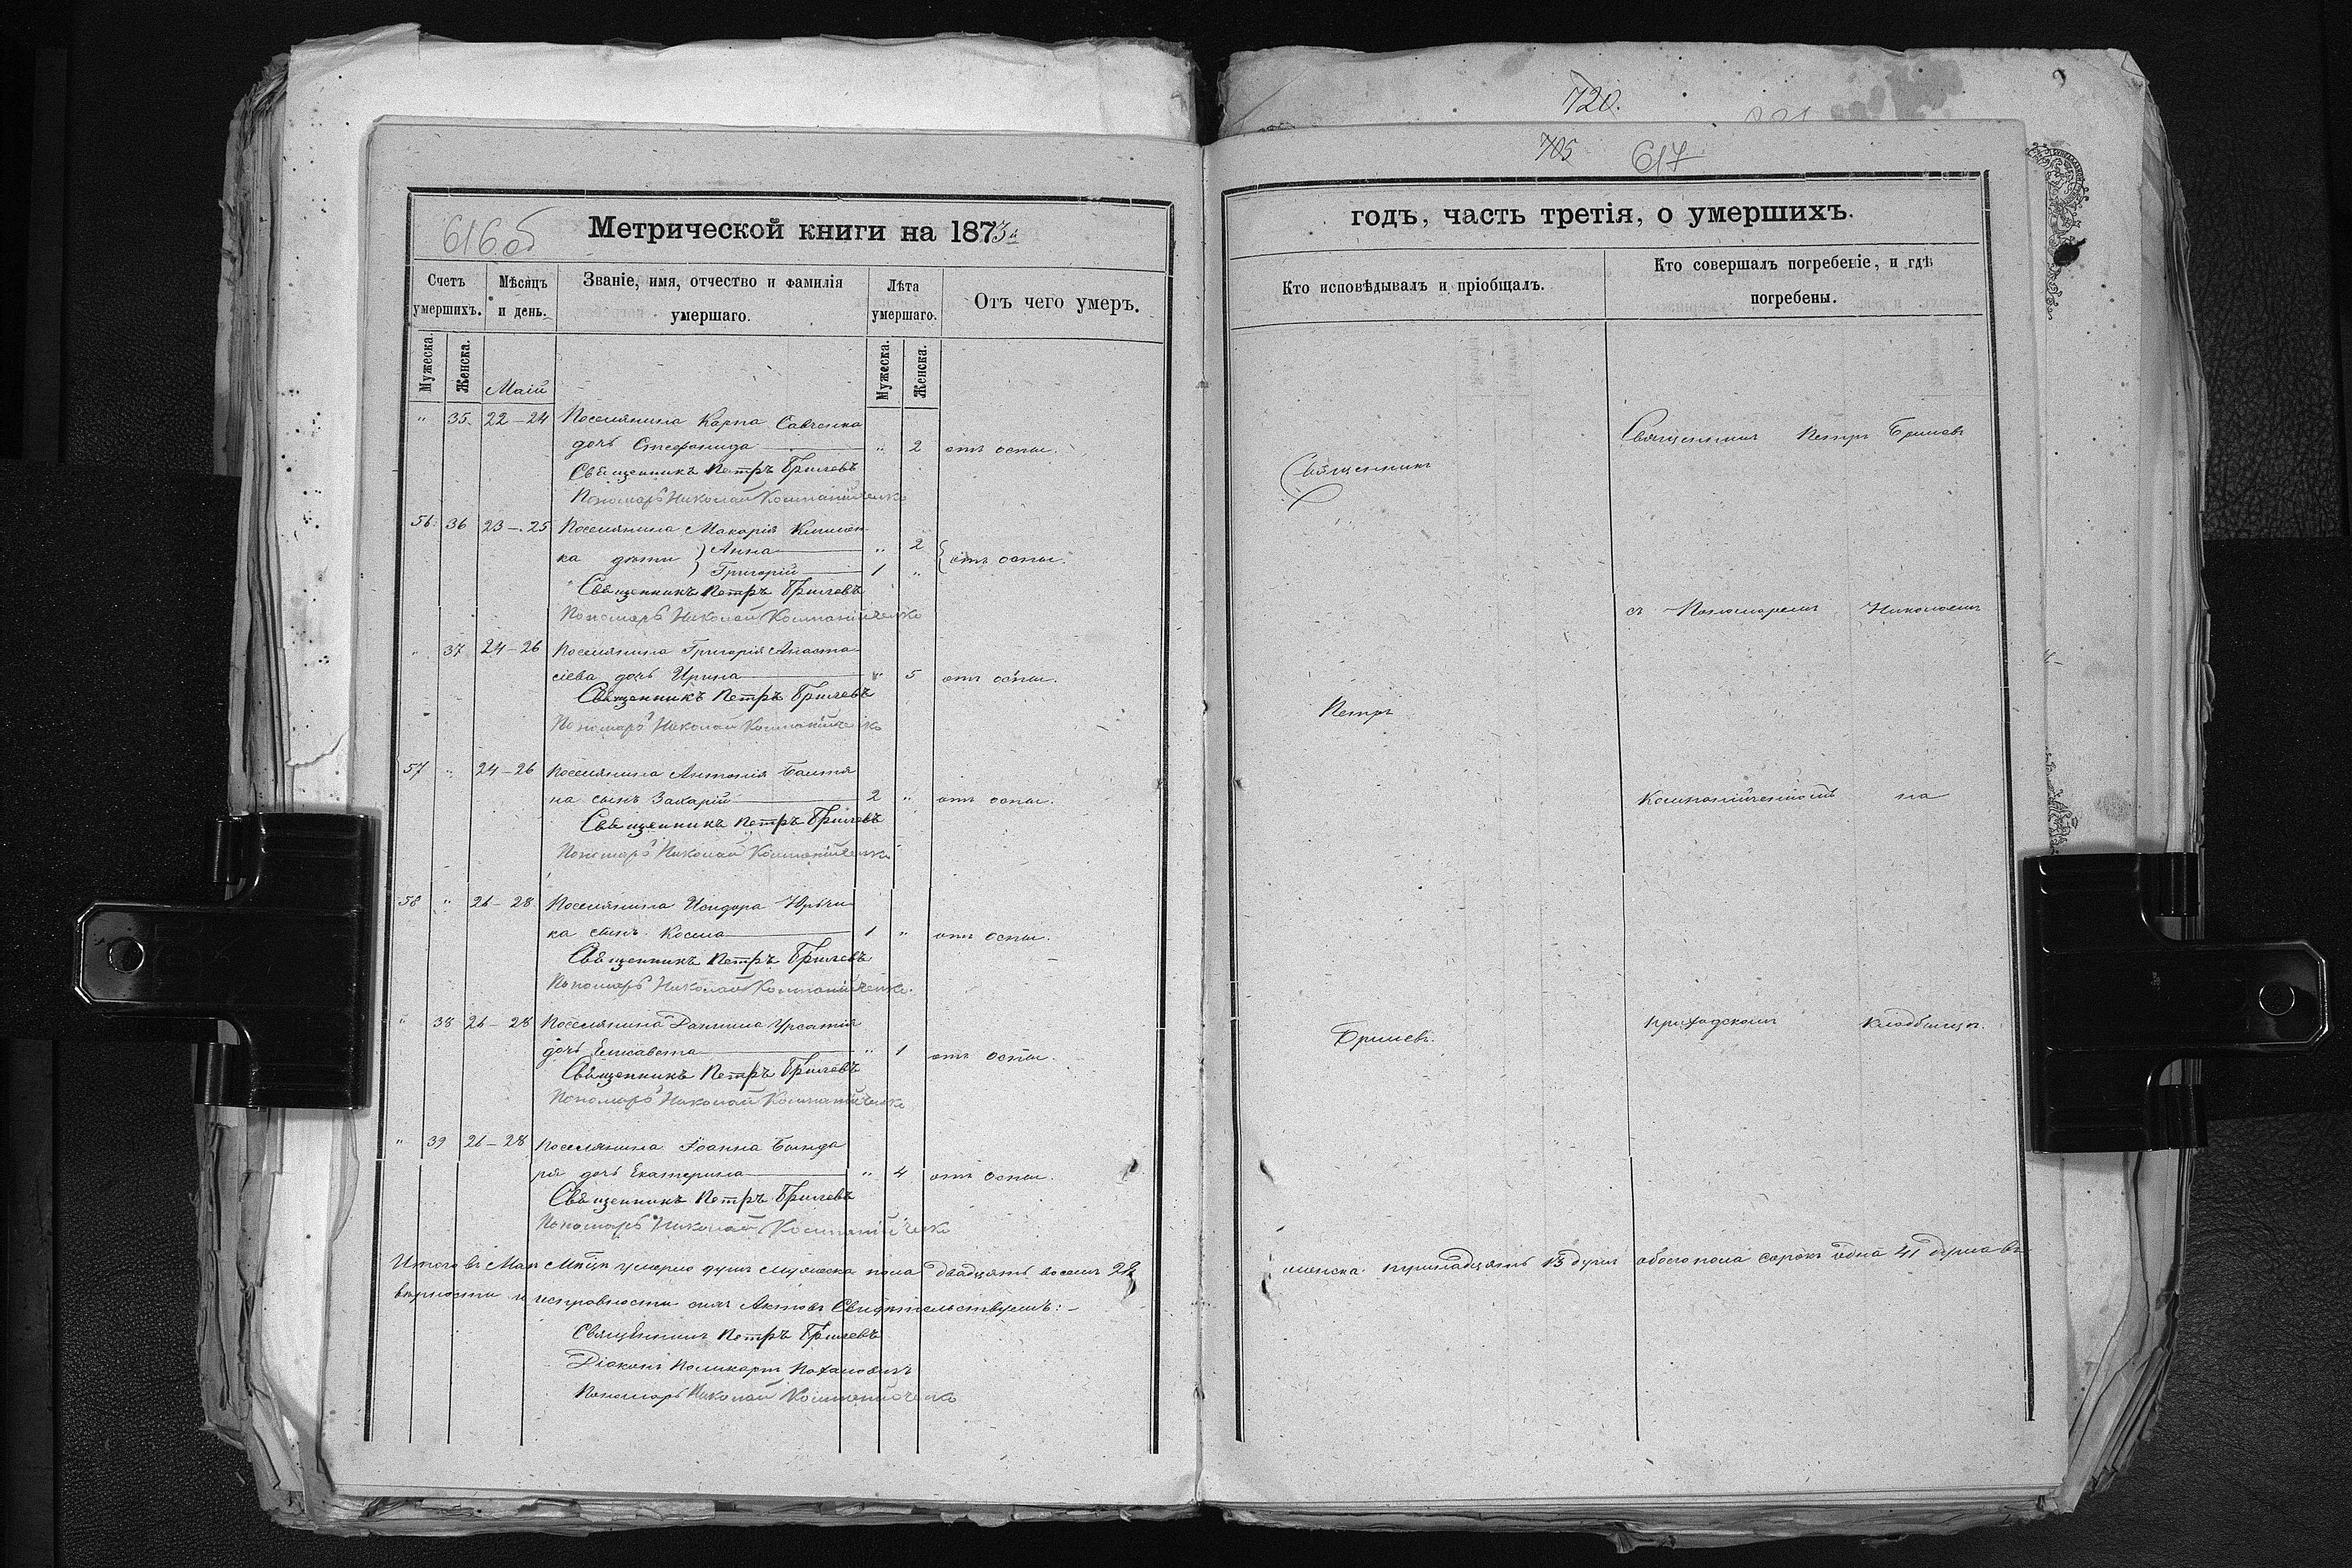 616 об
Метрической книги на 1873й
Счетъ умершихъ.
Мѣсяцъ и день.
Званіе, имя, отчество и фамилія умершаго.
Лѣта умершаго.
Отъ чего умеръ.
Мужеска.
Женска.
Маій
Мужеска.
Женска.
" 35. 22-24 Поселянина Карпа Савченка
дочь Стефанида " 2 отъ оспы.
Священникъ Петръ
Пономарь Николай Компанійченко
56. 36 23-25 Поселянина Макарія
ка дѣти Анна " 2 отъ оспы.
Григорій 1 "
Священникъ Петръ
Пономарь Николай Компанійченко
" 37 24-26 Поселянина Григорія Анаста
сіева дочь Ирина " 5 отъ оспы.
Священникъ Петръ
Пономарь Николай Компанійченко
57 " 24-26 Поселянина Антонія
на сынъ Захарій 2 " отъ оспы.
Священникъ Петръ
Пономарь Николай Компанійченко
58 " 26-28 Поселянина Исидора
ка сынъ Косма 1 " отъ оспы.
Священникъ Петръ
Пономарь Николай Компанійченко.
" 38 26-28 Поселянина Даниила Урсатія
дочь Елисавета " 1 отъ оспы.
Священникъ Петръ
Пономарь Николай Компанійченко
" 39 26-28 Поселянина Іоанна Бонда
ря дочь Екатерина " 4 отъ оспы.
Священникъ Петръ
Пономарь Николай Компанійченко
Итого въ Маѣ Мѣсяцѣ умерло душъ мужеска пола двадцать восемь 28
вѣрности и исправности сихъ Актовъ Свидѣтельствуемъ:-
Священникъ Петръ
Діаконъ Поликарпъ
Пономарь Николай Компанійченко
720.
705 617
годъ, часть третія, о умершихъ.
Кто исповѣдывалъ и пріобщалъ.
Кто совершалъ погребеніе, и гдѣ погребены.
Священникъ Петръ
Священникъ
съ Пономаремъ Николаемъ
Петръ
Компанійченкомъ на
приходскомъ кладбищѣ.
женска тринадцать 13 душъ обоего пола сорокъ одна 41 душа въ